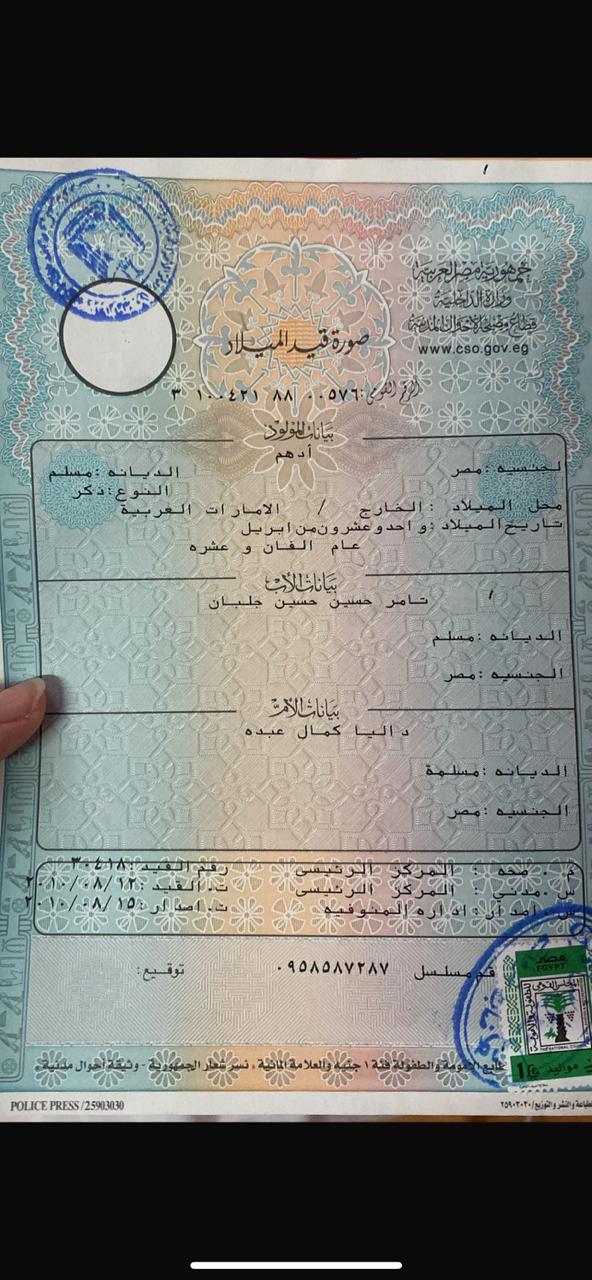 جمهورية مصر العربية
وزارة الداخلية
قطاع مصلحة الأحوال المدنية
www.cso.gov.eg
صورة قيد الميلاد
الرقم القومي: ٣ ١٠٠٤٢١ ٨٨ ٠٠٥٧٦
بيانات المولود
أدهم
لجنسيه :مصر الديانه :مسلم
النوع :ذكر
محل الميلاد : الخارج / الامارات العربية
تاريخ الميلاد :واحد وعشرون من ابريل
عام الفان و عشره
بيانات الأب
تامر حسين حسين جلبان
الديانه :مسلم
الجنسيه :مصر
بيانات الأم
داليا كمال عبده
الديانه :مسلمة
الجنسيه :مصر
م . صحه : المركز الرئيسى رقم القيد :٣٠٤١٨
س .مدني : المركز الرئيسى ت.القيد :٢٠١٠/٠٨/١٢
اصدار: اداره المنوفيه ت.اصدار :٢٠١٠/٠٨/١٥
قم مسلسل ٠٩٥٨٥٨٧٢٨٧ توقيع:
مصر
EGYPT
مواليد 1
طابع الأمومة والطفولة فئة ١ جنيه والعلامة المائية ، نسر شعار الجمهورية - وثيقة أحوال مدنية
POLICE PRESS /25903030 لطباعة والنشر والتوزيع/٢٥٩٠٣٠٣٠